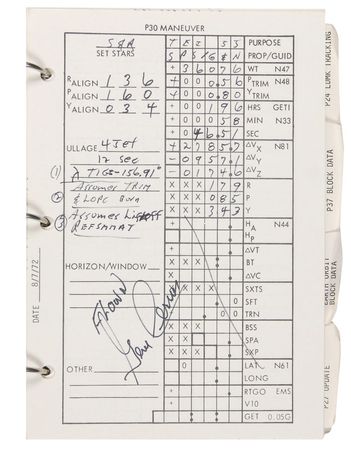 P30 MANEUVER
S&A
SET STARS
T E 2 5 3 PURPOSE
S P S X G & N PROP/GUID
+ 3 6 0 7 6 WT N47
R ALIGN 1 3 6
+ 0 0 0.5 6 P TRIM N48
P ALIGN 1 6 0
+ 0 0.8 0 Y TRIM
Y ALIGN 0 3 4
+ 0 0 1 9 6 HRS GETI
+ 0 0 0 5 8 MIN N33
+ 0 4 6.5 1 SEC
ULLAGE 4 Jet
+ 2 7 8 5.7 ΔVX N81
12 sec
- 0 9 5 7.1 ΔVY
(1) λ TIG = -156.91°
- 0 1 7 4.6 ΔVZ
Assumes TRIM
X X X 1 7 9 R
(2) & LOPC Burn
X X X 0 8 5 P
(3) Assumes Liftoff
X X X 3 4 3 Y
REFSMMAT
+ HA N44
HP
+ ΔVT
X BT
X ΔVC
HORIZON/WINDOW
X SXTS
+ 0 SFT
+ 0 0 TRN
X X X BSS
X X SPA
X X X SXP
OTHER
0 LAT N61
LONG
+ RTGO EMS
+ V10
GET 0.05G
FLOWN
Gene Cernan
DATE 8/7/72
P24 LDMK TRACKING
P37 BLOCK DATA
EARTH ORBIT
BLOCK DATA
P27 UPDATE